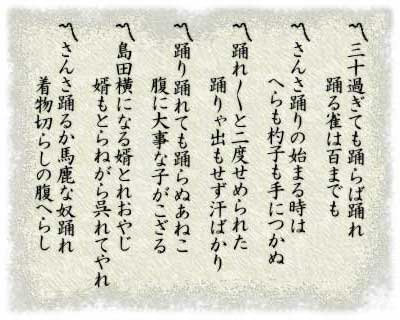 〽三十過ぎても踊らば踊れ
踊る雀は百までも
〽さんさ踊りの始まる時は
へらも杓子も手につかぬ
〽踊れ〳〵と二度せめられた
踊りゃ出もせず汗ばかり
〽踊り踊れても踊らぬあねこ
腹に大事な子がござる
〽島田横になる婿とれおやじ
婿もとらねがら呉れてやれ
〽さんさ踊るか馬鹿な奴踊れ
着物切らしの腹へらし